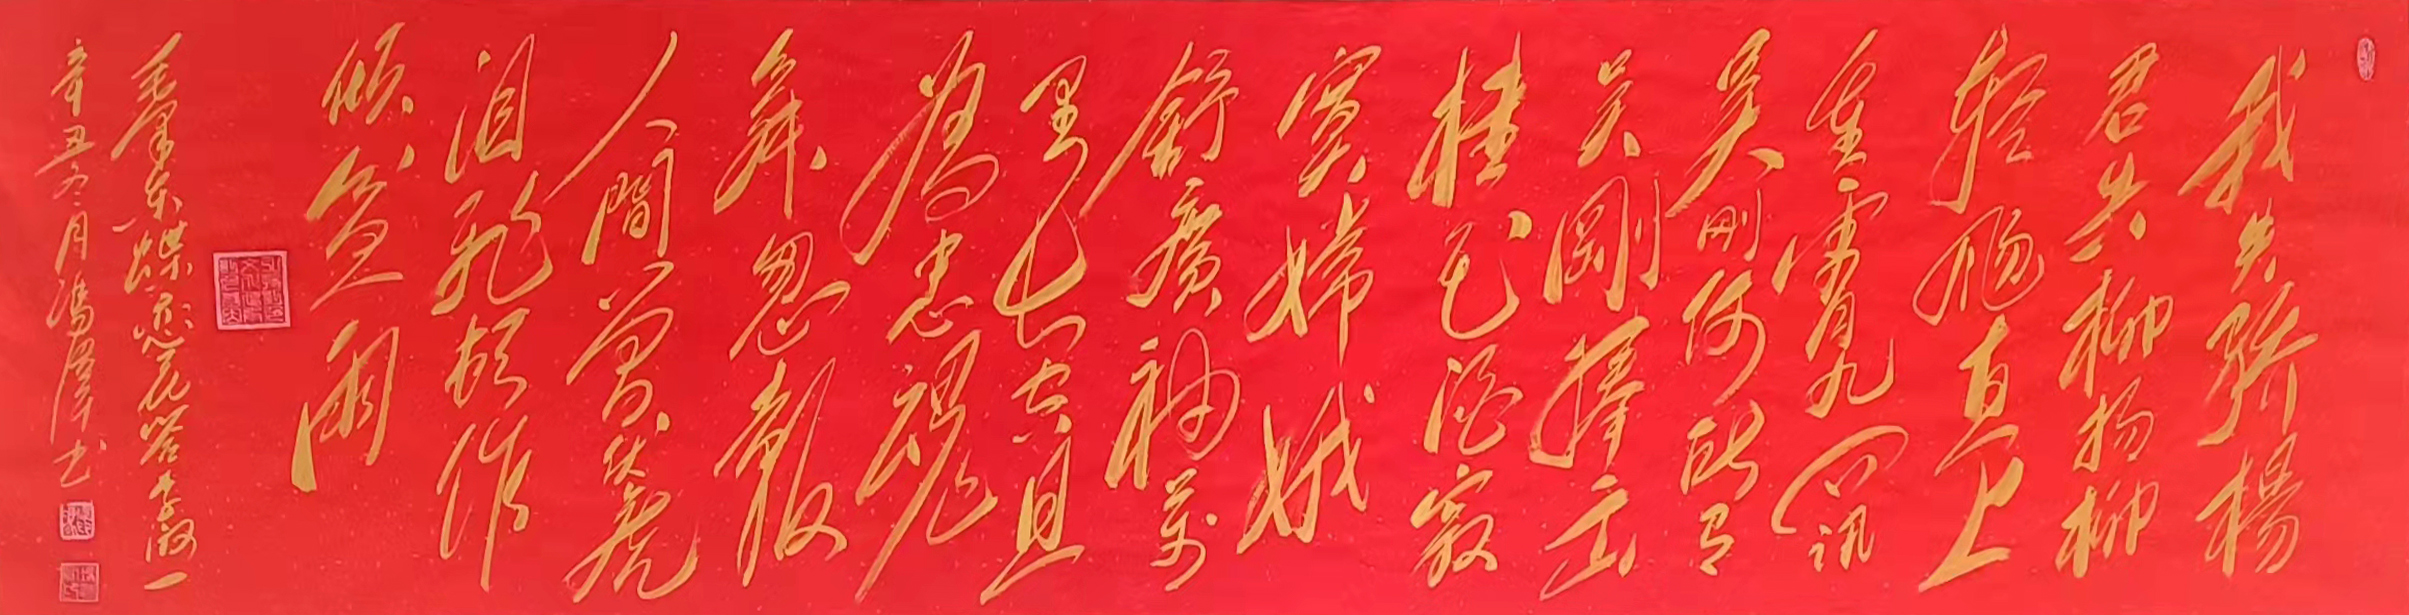 我失骄楊
君失柳杨柳
轻飏直上
重霄九问讯
吴刚何所有
吴剛捧出
桂花酒寂
寞嫦娥
舒廣袖万
里长空且
为忠魂
舞忽報
人間曾伏虎
泪飛顿作
倾盆雨
毛泽东蝶恋花答李淑一
辛丑冬月冯书